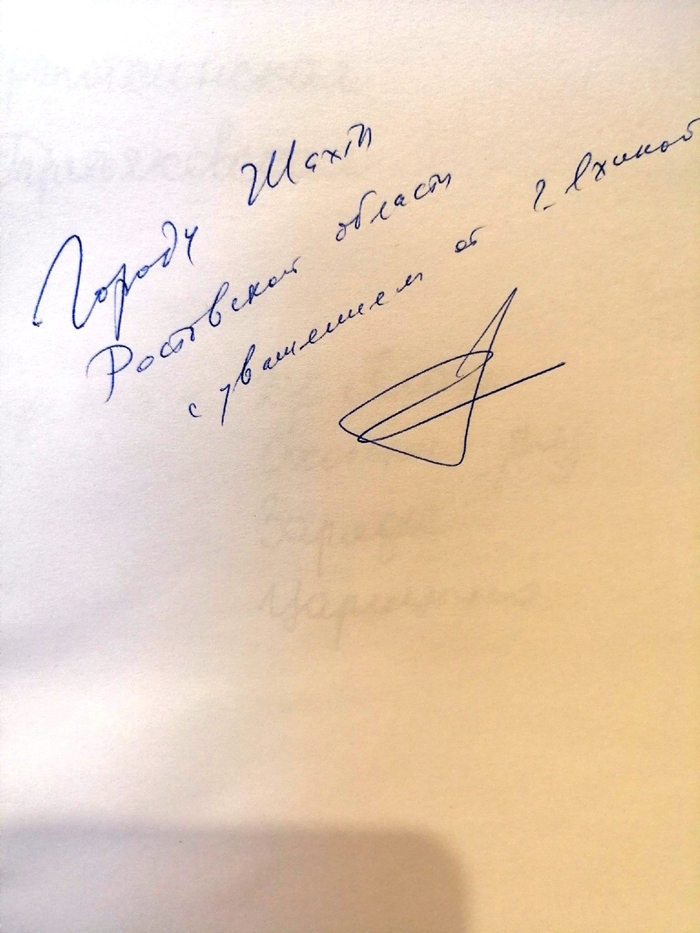 Городу Шахты
Ростовской области
с уважением от Г. Яхиной